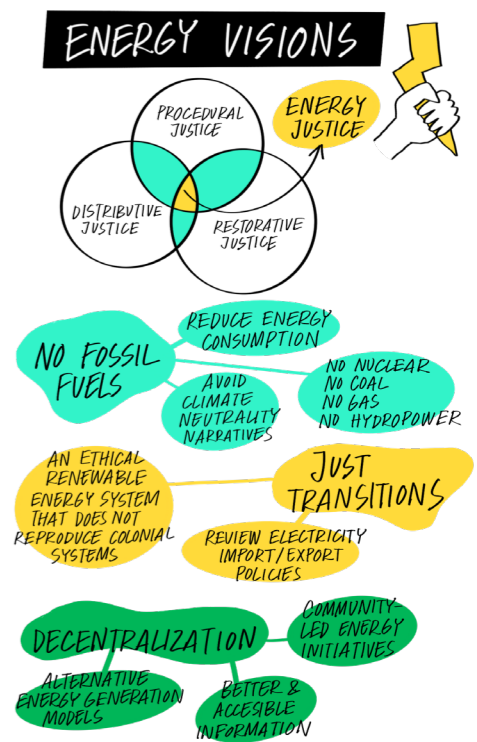 ENERGY VISIONS
PROCEDURAL
JUSTICE
ENERGY
JUSTICE
DISTRIBUTIVE
JUSTICE
RESTORATIVE
JUSTICE
NO FOSSIL
FUELS
REDUCE ENERGY
CONSUMPTION
AVOID
CLIMATE
NEUTRALITY
NARRATIVES
NO NUCLEAR
NO COAL
NO GAS
NO HYDROPOWER
AN ETHICAL
RENEWABLE
ENERGY SYSTEM
THAT DOES NOT
REPRODUCE COLONIAL
SYSTEMS
JUST
TRANSITIONS
REVIEW ELECTRICITY
IMPORT/EXPORT
POLICIES
DECENTRALIZATION
COMMUNITY-
LED ENERGY
INITIATIVES
ALTERNATIVE
ENERGY GENERATION
MODELS
BETTER &
ACCESIBLE
INFORMATION